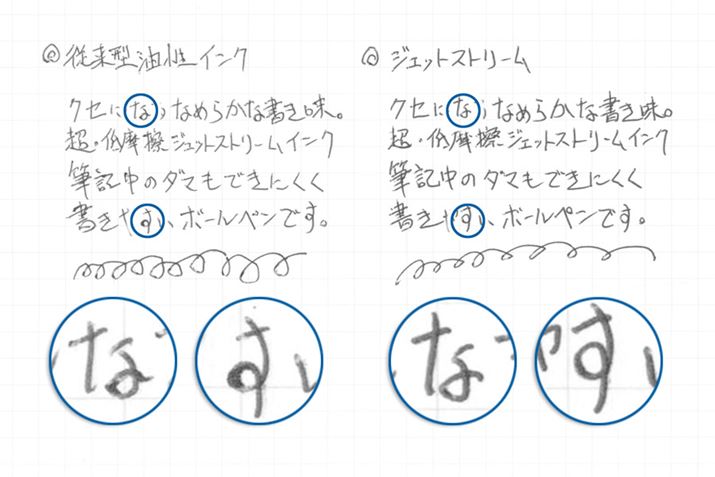 ◎従来型油性インク
クセになる、なめらかな書き味。
超・低摩擦ジェットストリームインク
筆記中のダマもできにくく
書きやすい、ボールペンです。
な
す
◎ジェットストリーム
クセになる、なめらかな書き味。
超・低摩擦ジェットストリームインク
筆記中のダマもできにくく
書きやすい、ボールペンです。
な
やすい